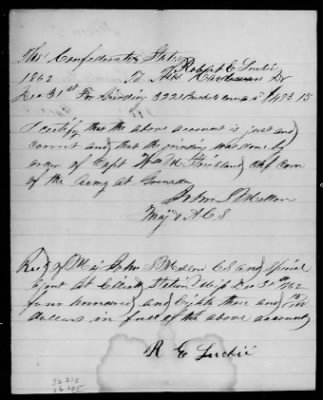 The Confederate States
Robert E Luckie
1862 To Dr
Dec 31st For Grinding 3221 Bushels corn 15¢ $483 15
I certify that the above account is just and
correct and that the grinding was done by
order of Capt Wm M Strickland chf com
of the army at Grenada
John S Mellon
Maj & A C S
Recd of Maj John S Mellon CS and special
agent at Elliott Station Miss Dec 31st 1862
four hundred and eighty three and 15/100
dollars in full of the above account
R E Luckie